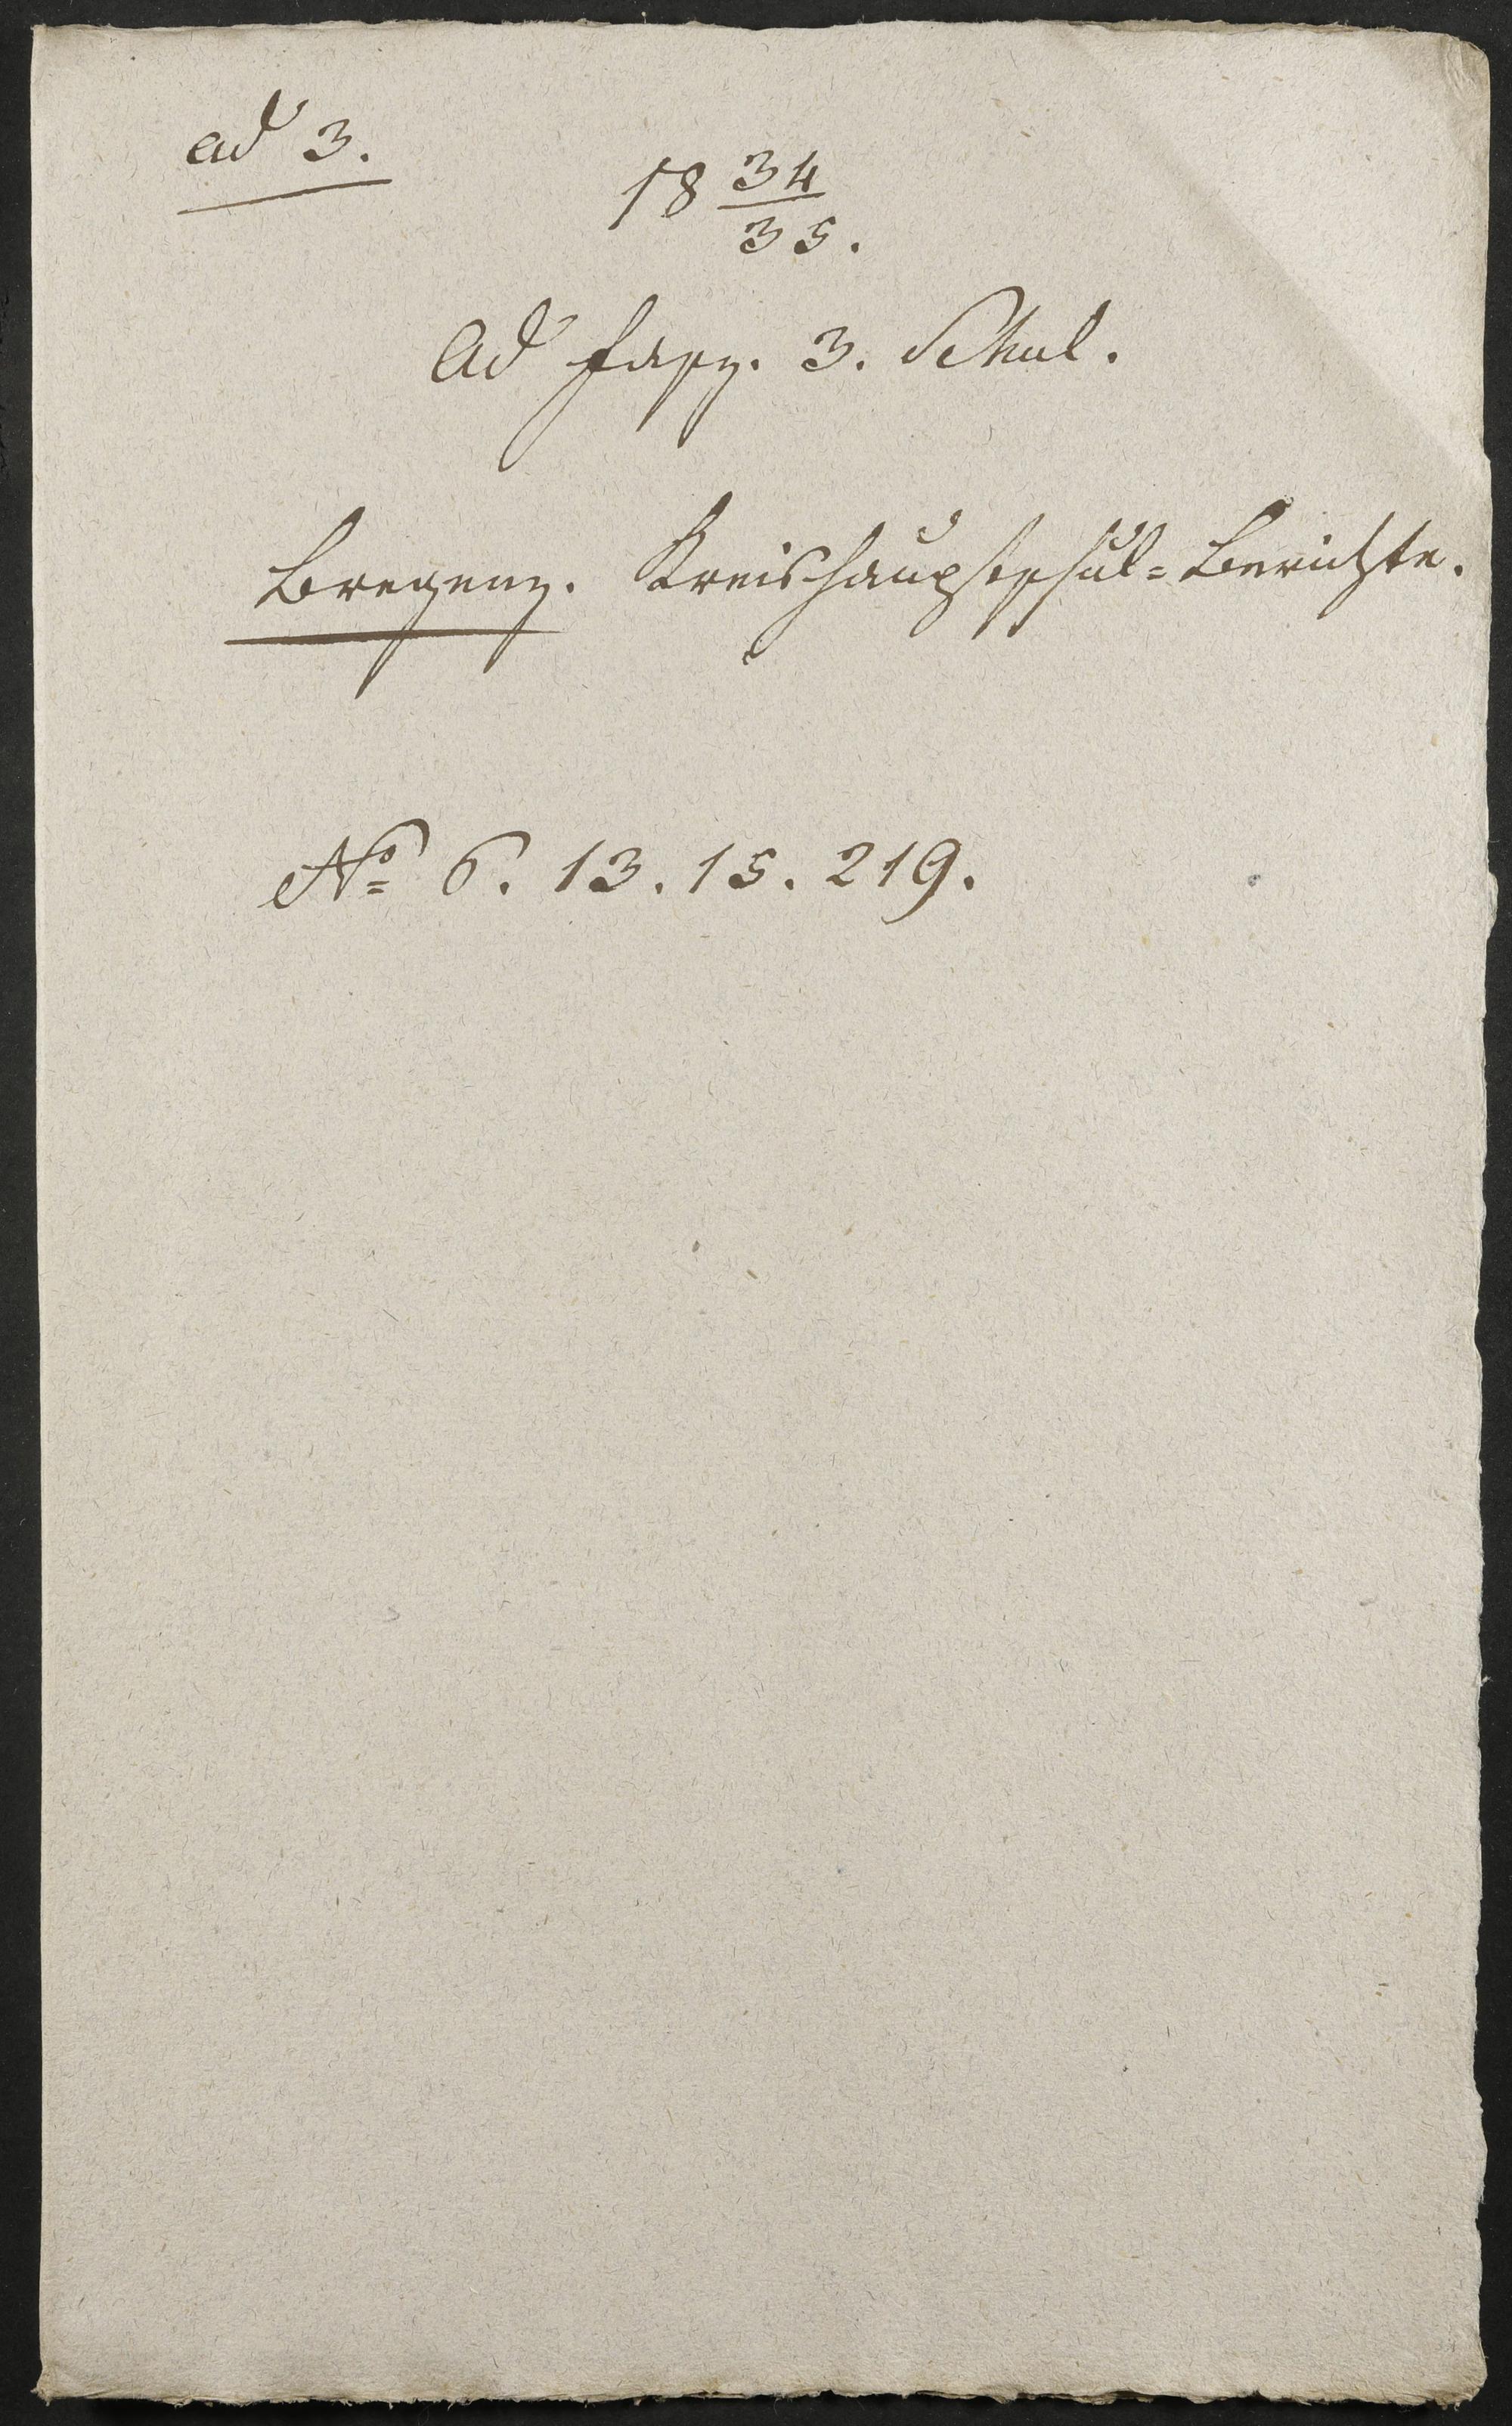 ad 3.
18 34/35.
Ad fasz. 3. Schul.
Bregenz. Kreishauptschul=Berichte.
No 6. 13. 15. 219.